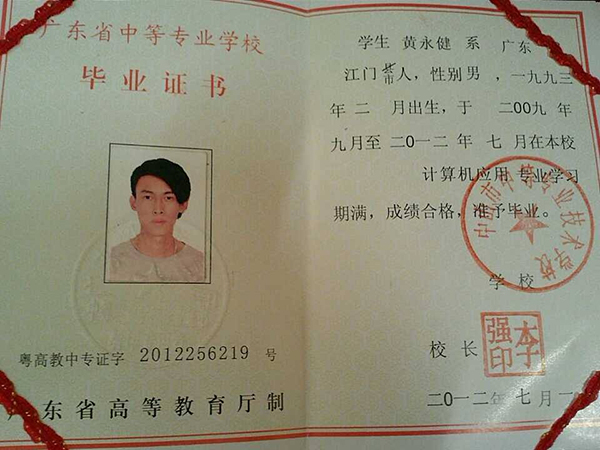 广东省中等专业学校
毕业证书
粤高教中专证字 2012256219 号
广东省高等教育厅制
学生 黄永健 系 广东
江门 县市人，性别 男，一九九三
年 二 月出生，于 二00九 年
九 月至 二0一二 年 七 月在本校
计算机应用 专业学习
期满，成绩合格，准予毕业。
技术学校
学校
校长
强印
二0一二年 七月 一